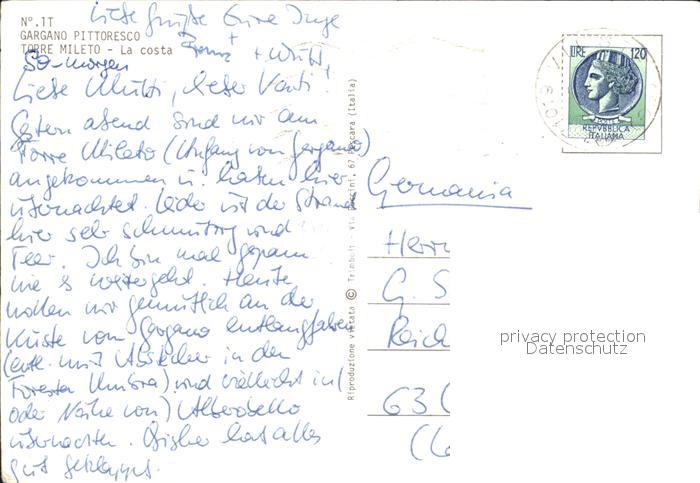 Liebe Grüße Eure Inge
+
Franz + Mutti,
N°.1T
GARGANO PITTORESCO
TORRE MILETO - La costa
So-morgen
Liebe Mutti, lieber Vati!
Gestern abend sind wir am
Torre Mileto (Anfang von Gargano)
angekommen u. haben hier
übernachtet. Leider ist der Strand
hier sehr schmutzig und
Teer. Ich bin mal gespannt
wie es weitergeht. Heute
wollen wir gemütlich an der
Küste von Gargano entlangfahren
(evtl. mit Abstecher in den
Foresta Umbra) und vielleicht in (
oder Nähe von) Alberobello
übernachten. Bisher hat alles
gut geklappt.
Riproduzione vietata © Trimboli - via 67 Pescara (Italia)
LIRE 120
REPVBBLICA
ITALIANA
Germania
Herrn
G. S
Reich
63
(
privacy protection
Datenschutz